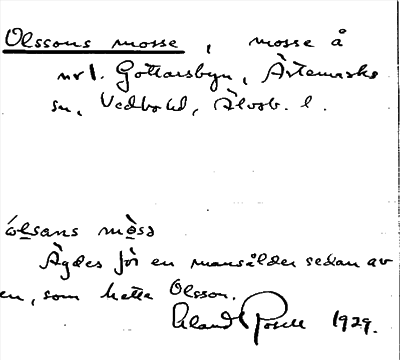 Olssons mosse, mosse å
nr 1. Gottarsbyn, Ärtemarks
sn, Vedbo hd, Älvsb. l.
ólsans mòsə
Ägdes för en mansålder sedan av
en, som hette Olsson.
Erland Rosell 1929.